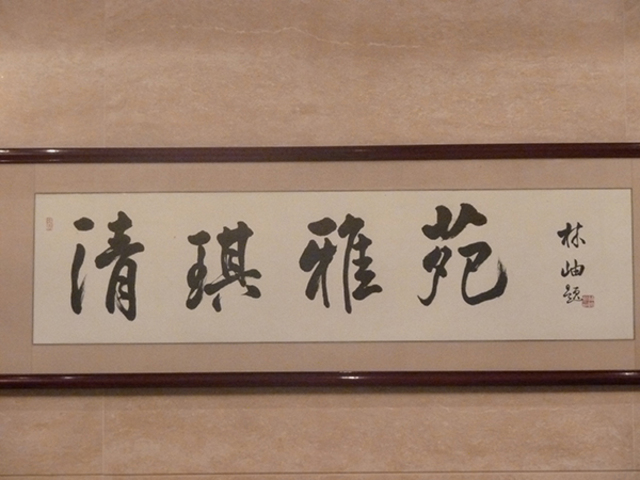 清琪雅苑
林岫題